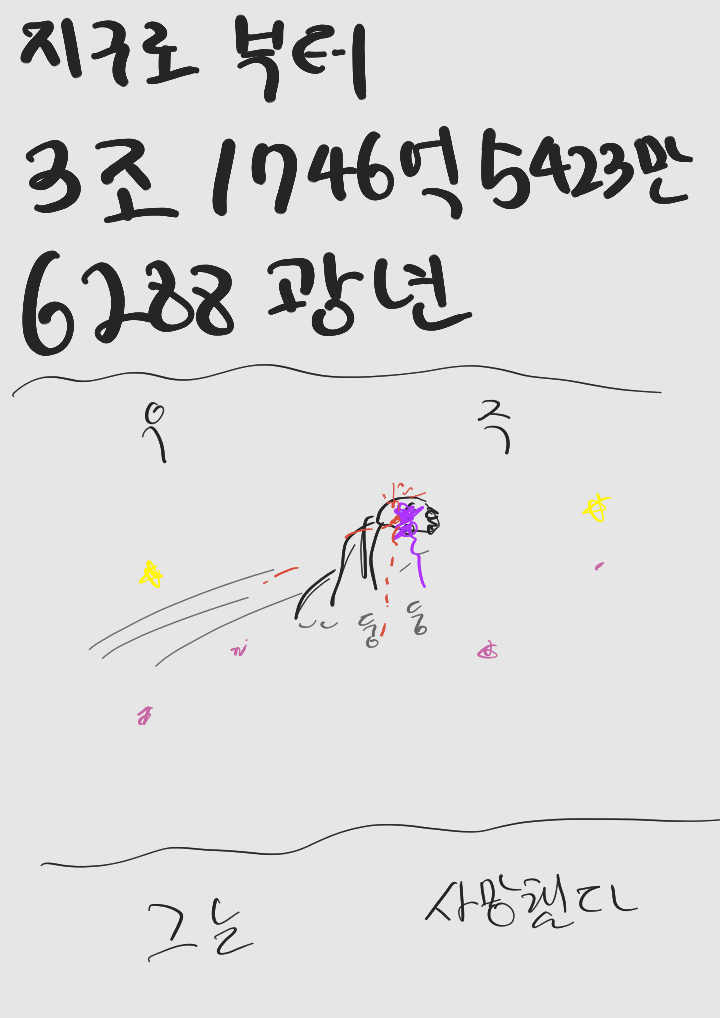 지구로 붙터
3조 1746억 5423만
6288 광년
우 주
둥 둥
그는 사망했다